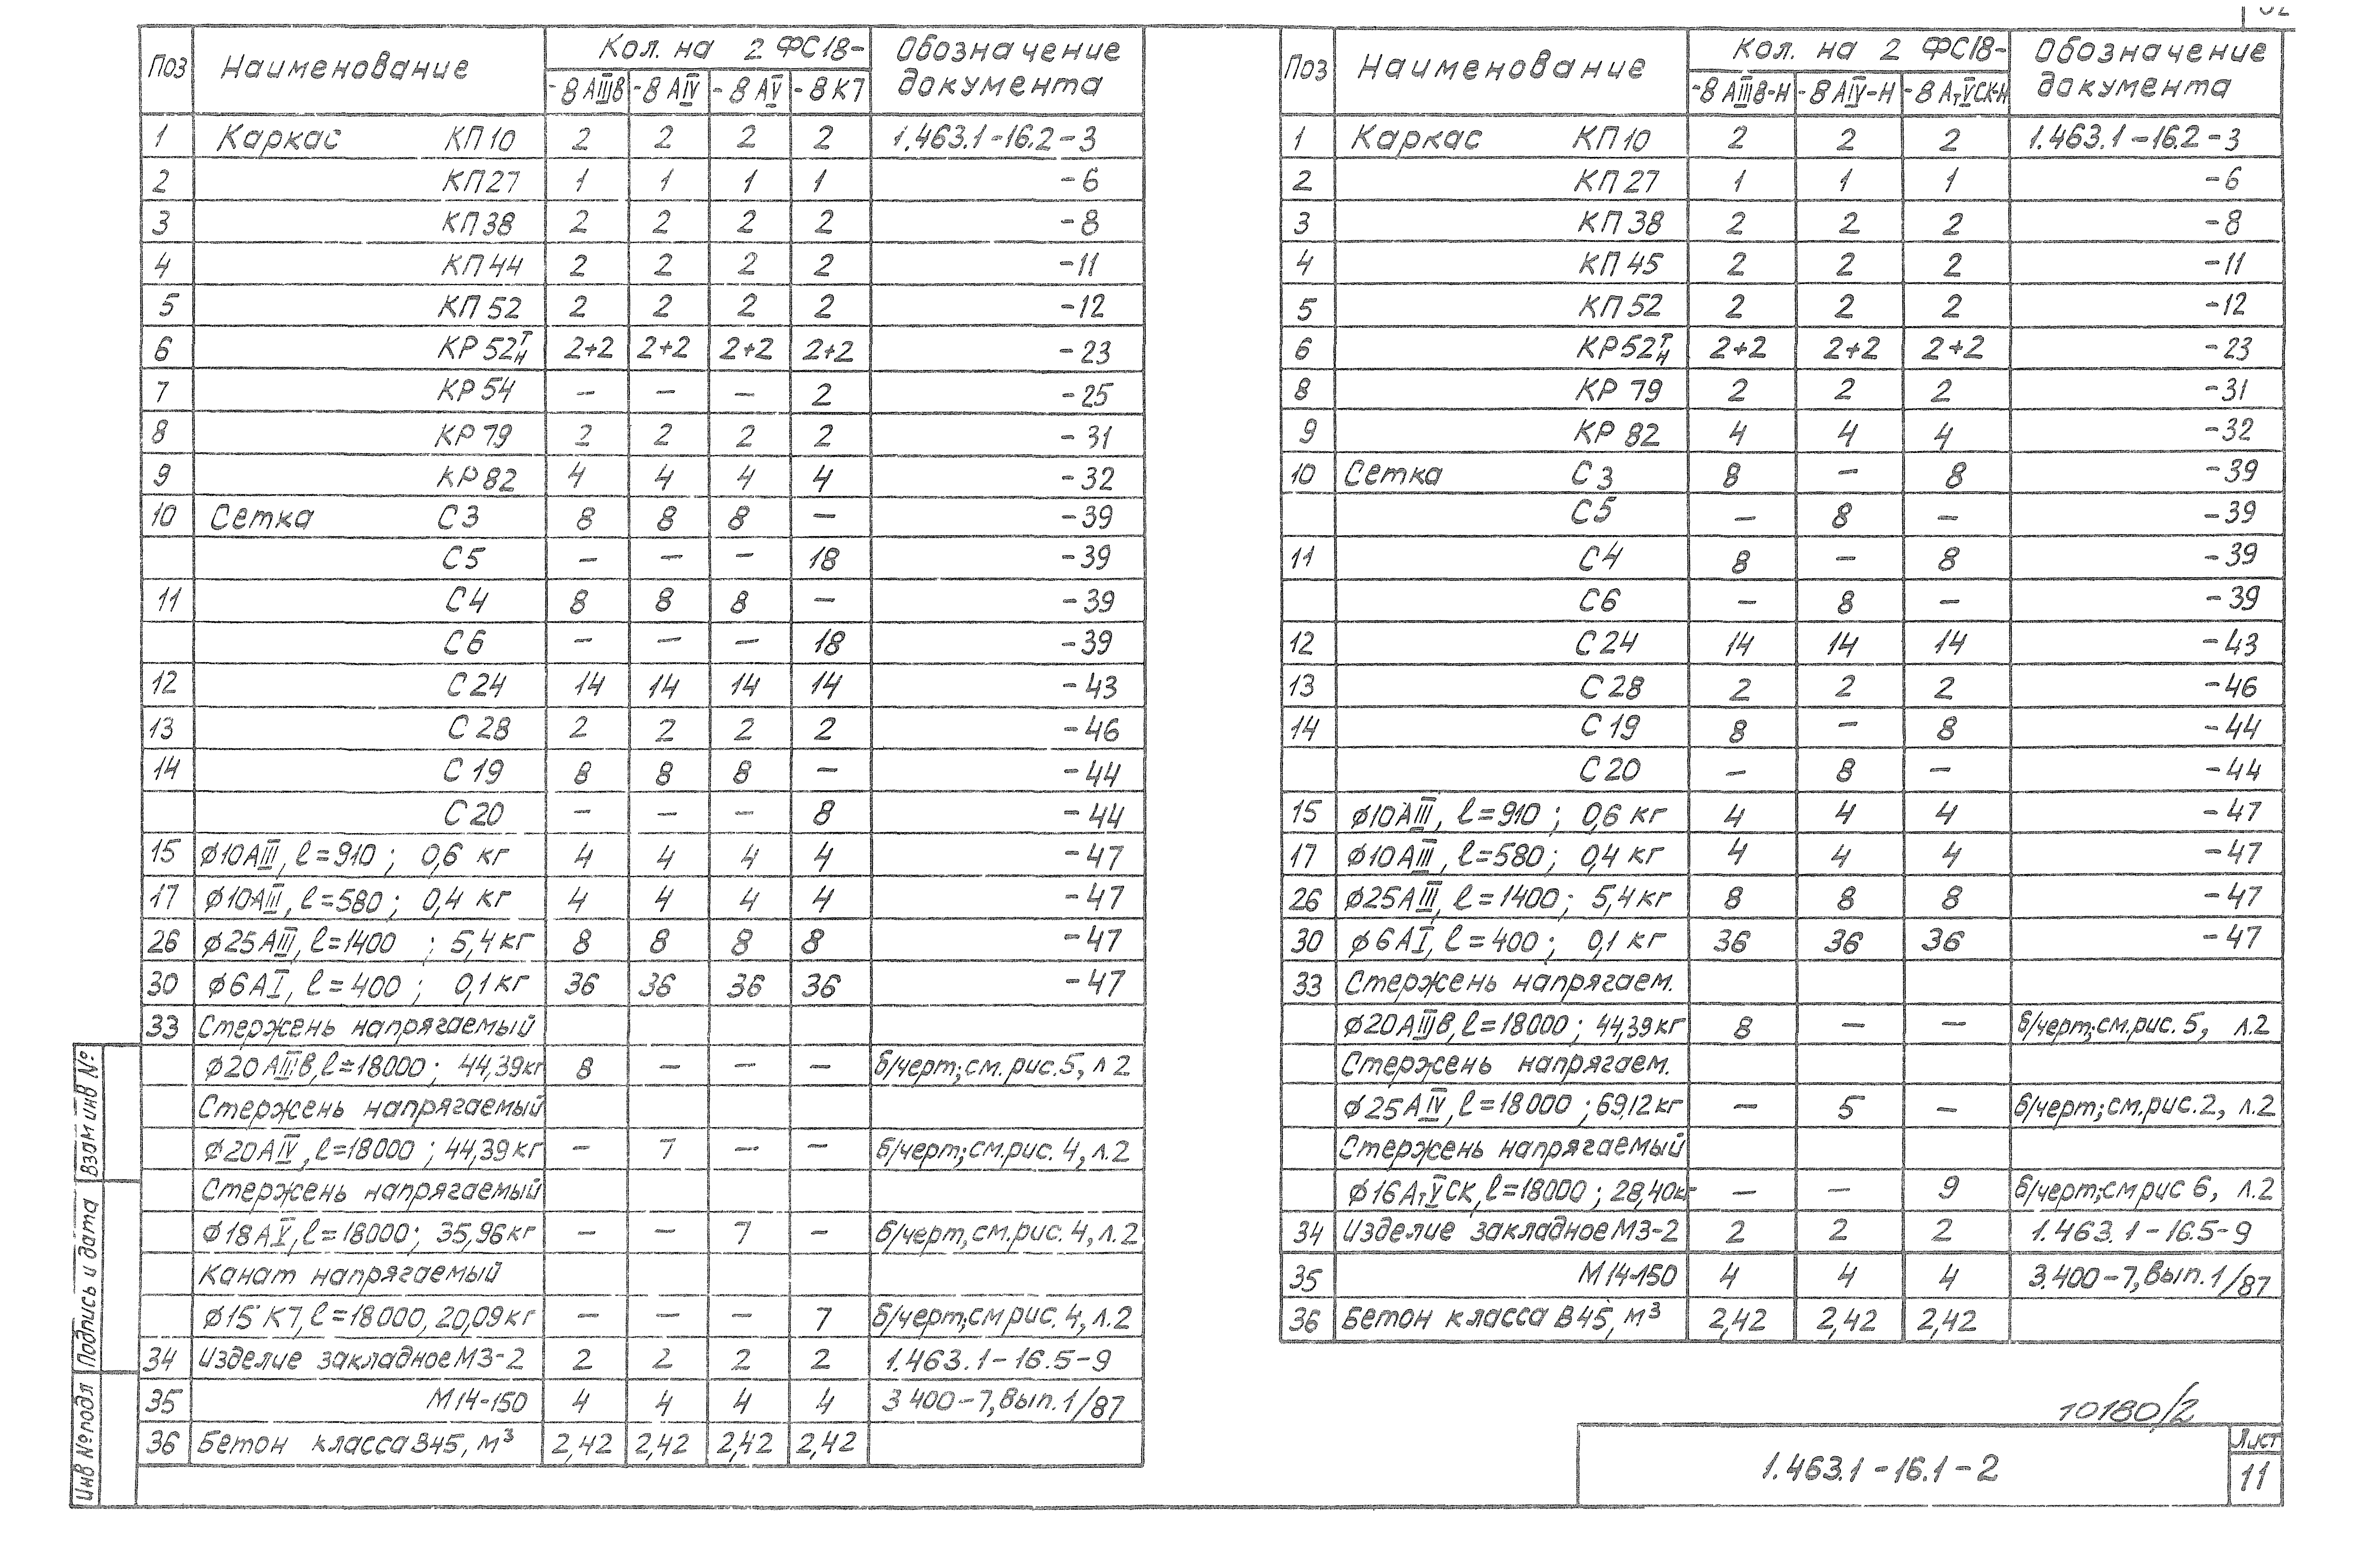 Поз Наименование Кол. на 2 ФС18- Обозначение документа
-8АIIIв -8АIV -8АV -8К7
1 Каркас КП10 2 2 2 2 1.463.1-16.2-3
2 КП27 1 1 1 1 -6
3 КП38 2 2 2 2 -8
4 КП44 2 2 2 2 -11
5 КП52 2 2 2 2 -12
6 КР52тн 2+2 2+2 2+2 2+2 -23
7 КР54 — — — 2 -25
8 КР79 2 2 2 2 -31
9 КР82 4 4 4 4 -32
10 Сетка С3 8 8 8 — -39
С5 — — — 18 -39
11 С4 8 8 8 — -39
С6 — — — 18 -39
12 С24 14 14 14 14 -43
13 С28 2 2 2 2 -46
14 С19 8 8 8 — -44
С20 — — — 8 -44
15 ⌀10АIII, ℓ=910; 0,6 кг 4 4 4 4 -47
17 ⌀10АIII, ℓ=580; 0,4 кг 4 4 4 4 -47
26 ⌀25АIII, ℓ=1400; 5,4кг 8 8 8 8 -47
30 ⌀6АI, ℓ=400; 0,1кг 36 36 36 36 -47
33 Стержень напрягаемый
⌀20АIIIв, ℓ=18000; 44,39кг 8 — — — б/черт; см. рис. 5, л 2
Стержень напрягаемый
⌀20АIV, ℓ=18000; 44,39кг — 7 — — б/черт; см. рис. 4, л.2
Стержень напрягаемый
⌀18АV, ℓ=18000; 35,96кг — — 7 — б/черт, см. рис. 4, л.2
Канат напрягаемый
⌀15 К7, ℓ=18000, 20,09кг — — — 7 б/черт; см рис. 4, л.2
34 Изделие закладное МЗ-2 2 2 2 2 1.463.1-16.5-9
35 М14-150 4 4 4 4 3 400-7, вып.1/87
36 Бетон класса В45, м³ 2,42 2,42 2,42 2,42
Поз Наименование Кол. на 2 ФС18- Обозначение документа
-8АIIIв-Н -8АIV-Н -8АтVСК-Н
1 Каркас КП10 2 2 2 1.463.1-16.2-3
2 КП27 1 1 1 -6
3 КП38 2 2 2 -8
4 КП45 2 2 2 -11
5 КП52 2 2 2 -12
6 КР52тн 2+2 2+2 2+2 -23
8 КР79 2 2 2 -31
9 КР82 4 4 4 -32
10 Сетка С3 8 — 8 -39
С5 — 8 — -39
11 С4 8 — 8 -39
С6 — 8 — -39
12 С24 14 14 14 -43
13 С28 2 2 2 -46
14 С19 8 — 8 -44
С20 — 8 — -44
15 ⌀10АIII, ℓ=910; 0,6 кг 4 4 4 -47
17 ⌀10АIII, ℓ=580; 0,4 кг 4 4 4 -47
26 ⌀25АIII, ℓ=1400; 5,4кг 8 8 8 -47
30 ⌀6АI, ℓ=400; 0,1 кг 36 36 36 -47
33 Стержень напрягаем.
⌀20АIIIв, ℓ=18000; 44,39кг 8 — — б/черт; см. рис. 5, л.2
Стержень напрягаем.
⌀25АIV, ℓ=18000; 69,12кг — 5 — б/черт; см. рис. 2, л.2
Стержень напрягаемый
⌀16АтVСК, ℓ=18000; 28,40кг — — 9 б/черт; см рис 6, л.2
34 Изделие закладное МЗ-2 2 2 2 1.463.1-16.5-9
35 М14-150 4 4 4 3.400-7, вып.1/87
36 Бетон класса В45, м³ 2,42 2,42 2,42
10180/2
1.463.1-16.1-2
Лист
11
Взам инв №
Подпись и дата
Инв № подл